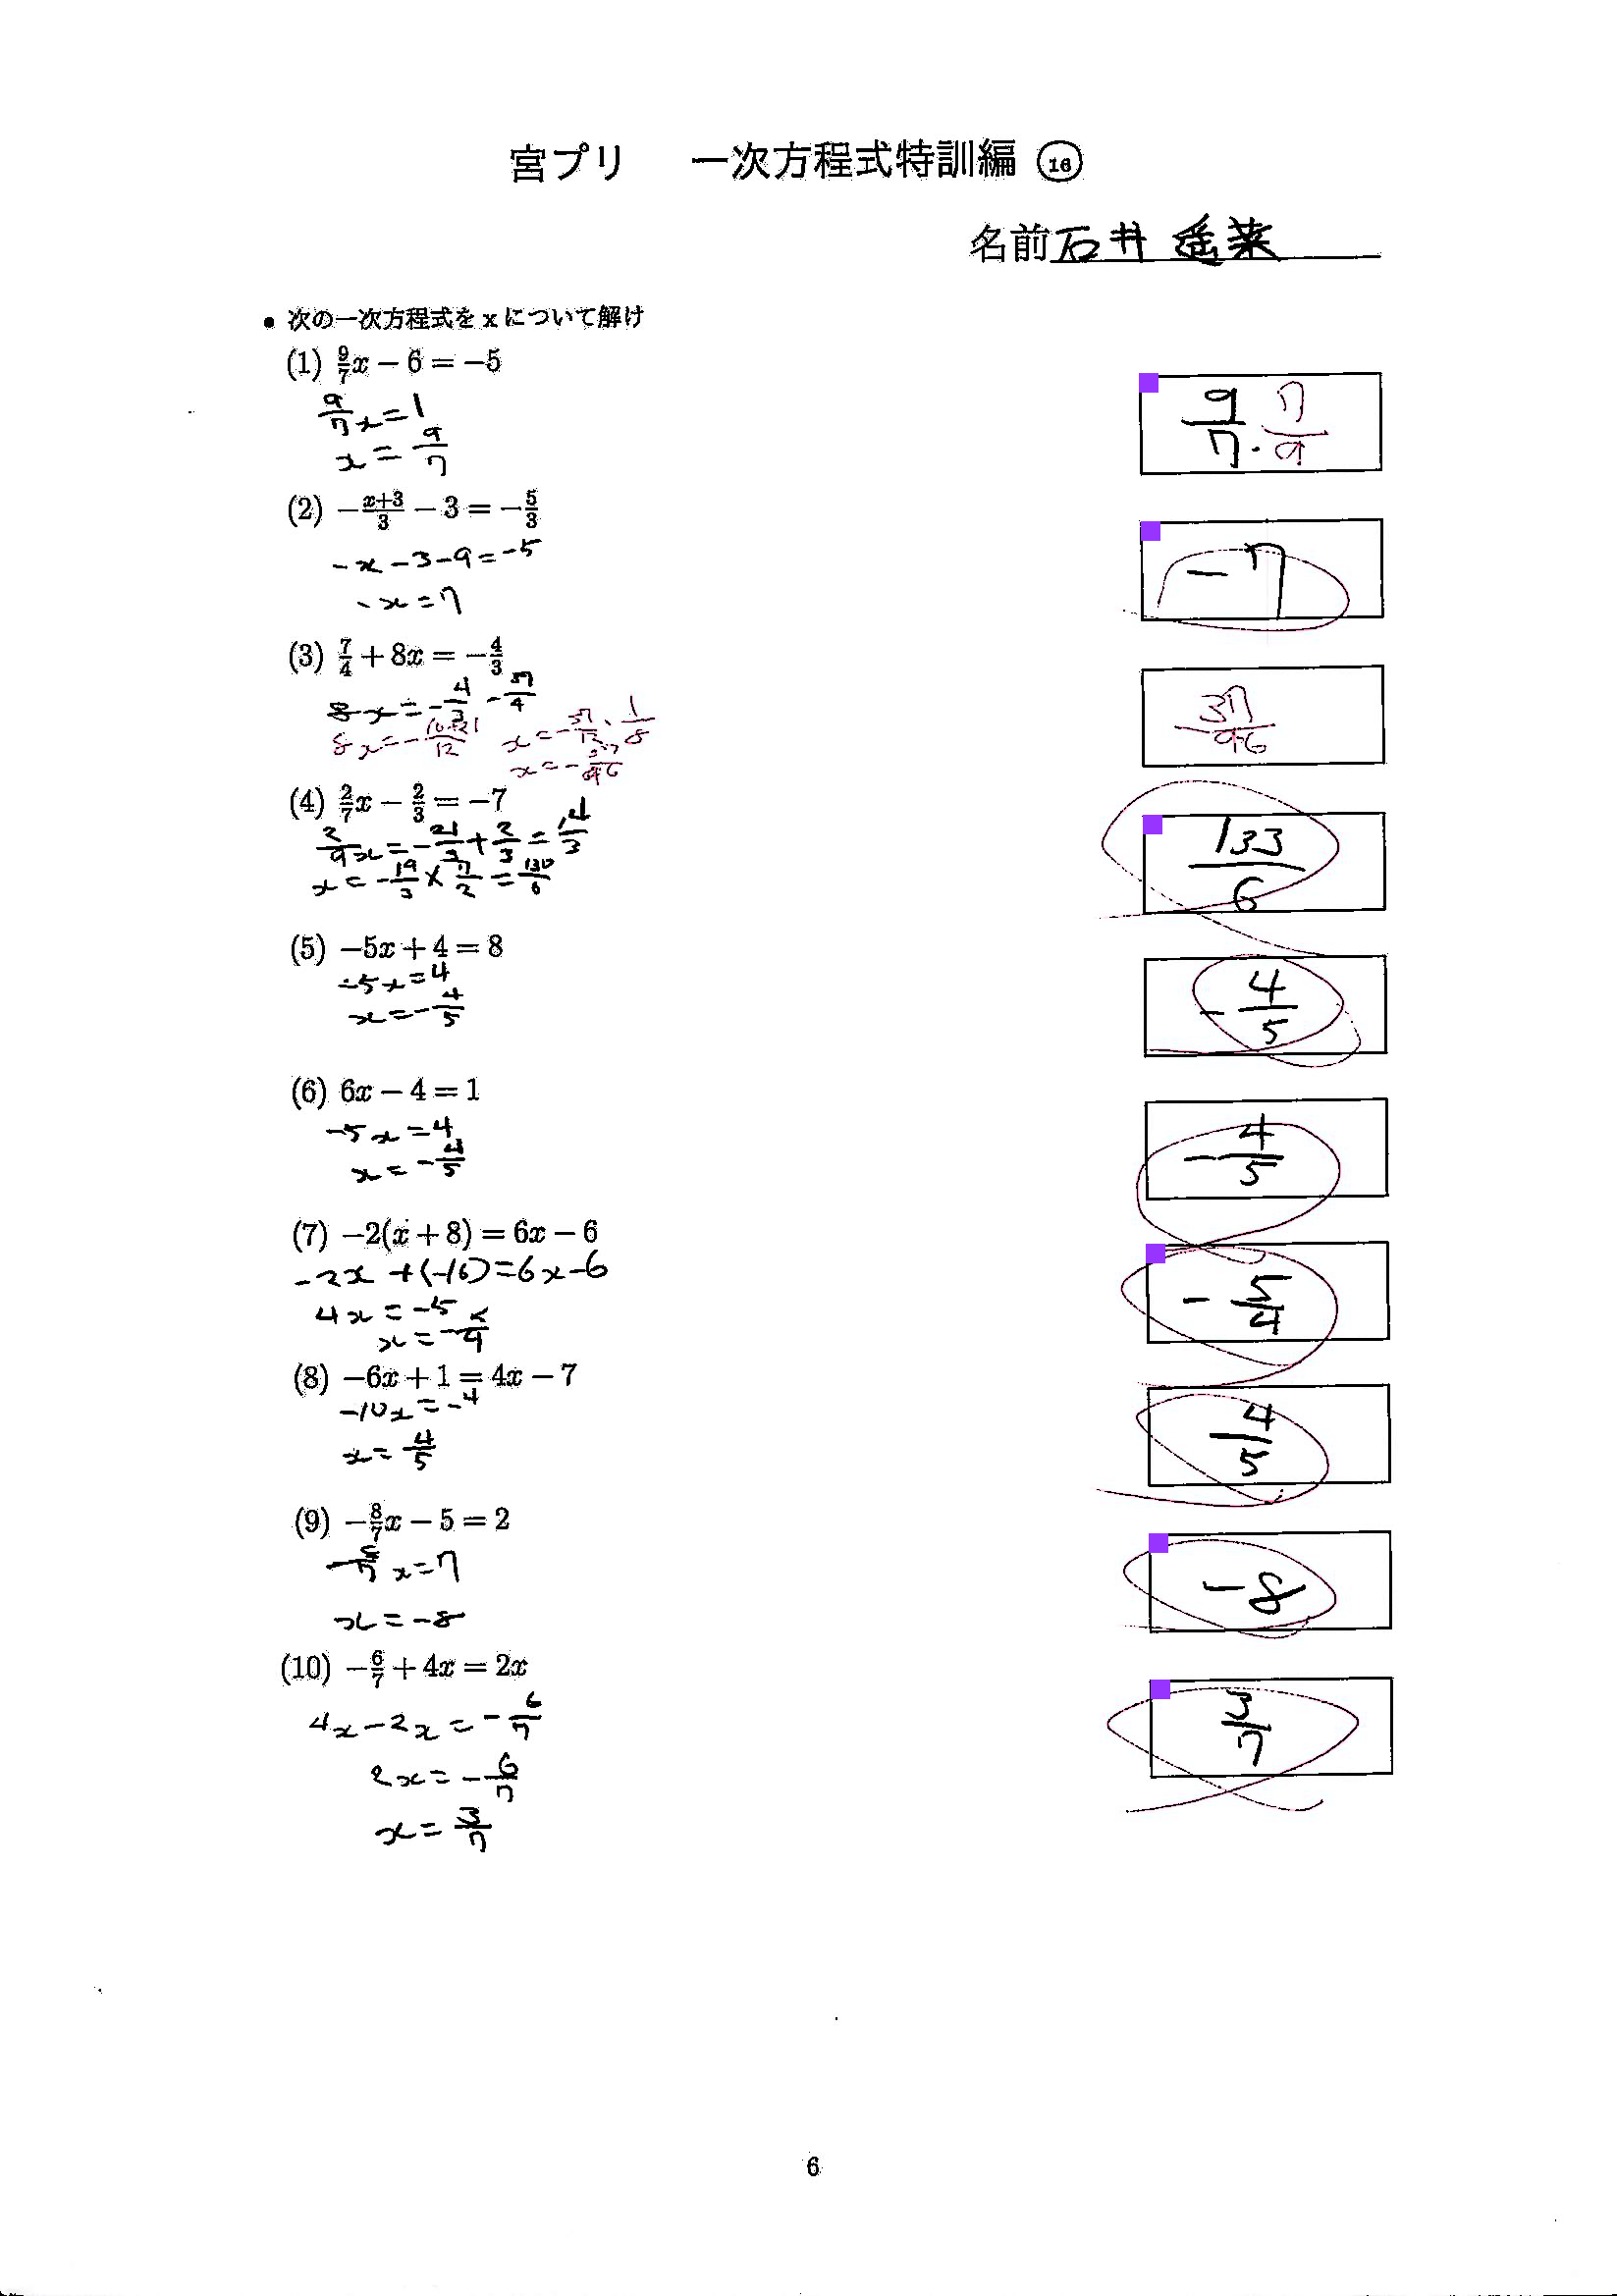 宮プリ 一次方程式特訓編 16
名前 石井 遥菜
• 次の一次方程式をxについて解け
(1) 9/7 x − 6 = −5
9/7 x = 1
x = 9/7
9/7 . 7/9
(2) −(x+3)/3 − 3 = −5/3
-x - 3 - 9 = -5
-x = 7
-7
(3) 7/4 + 8x = −4/3
8x = -4/3 -
8x = -(16+21)/12
x = -37/12 · 1/8
x = -37/96
-37/96
(4) 2/7 x − 2/3 = −7
x = -21/3 + 2/3 =
x = -19/3 × 7/2 =
133/6
(5) −5x + 4 = 8
-5x = 4
x = -4/5
-4/5
(6) 6x − 4 = 1
-5x = 4
x = -4/5
-4/5
(7) −2(x + 8) = 6x − 6
-2x + (-16) = 6x - 6
4x = -5
x = -
-5/4
(8) −6x + 1 = 4x − 7
-10x = -4
x = 4/5
4/5
(9) −8/7 x − 5 = 2
x = 7
x = -8
-8
(10) −6/7 + 4x = 2x
4x - 2x = -6/7
2x = -6/7
x = 3/7
3/7
6